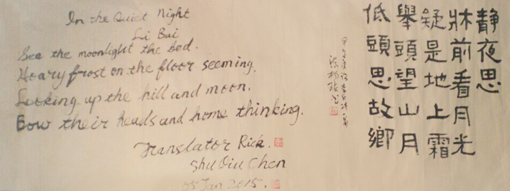 In the Quiet Night
Li Bai
See the moonlight the bed.
Hoary frost on the floor seeming.
Looking up the hill and moon.
Bow their heads and home thinking.
Translator Rick.
Shu Qiu Chen
05 Jan 2015.
静夜思
牀前看月光
疑是地上霜
舉頭望山月
低頭思故鄉